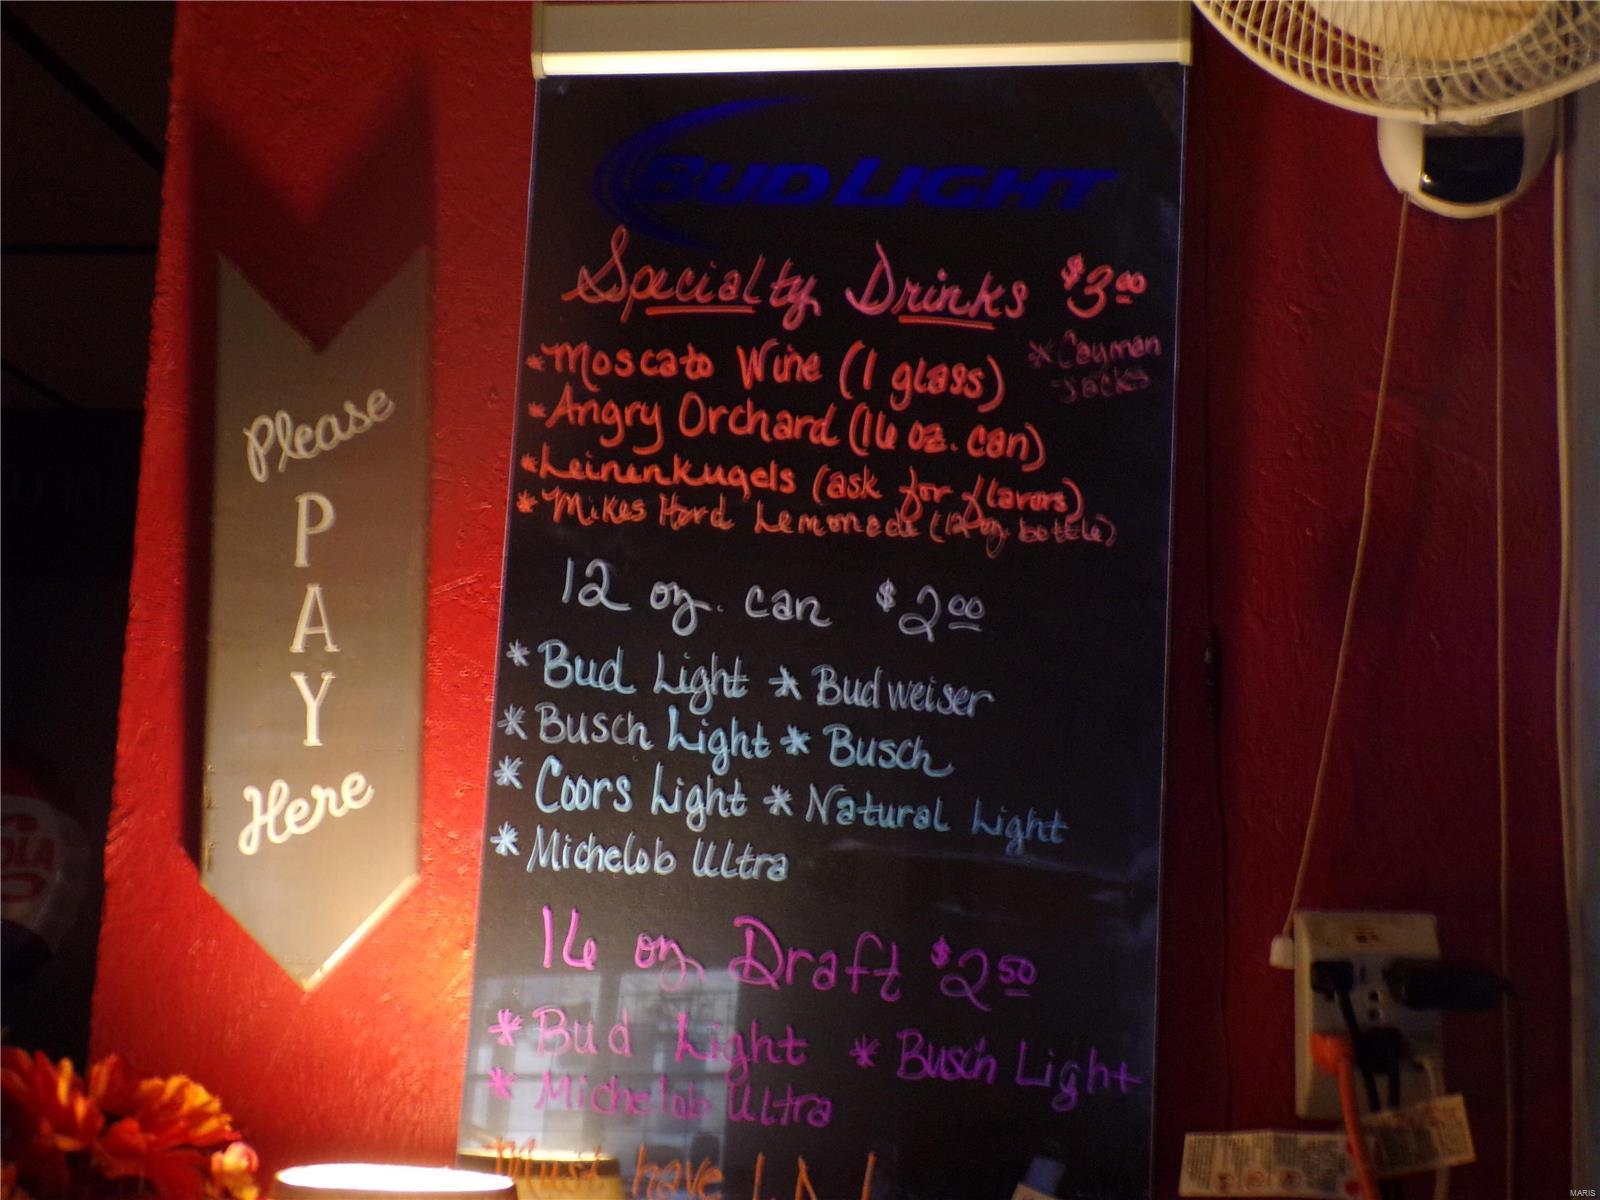 BUD LIGHT
Specialty Drinks $3.00
*Moscato Wine (1 glass)
*Cayman
Jacks
*Angry Orchard (16 oz. can)
*Leinenkugels (ask for flavors)
*Mikes Hard Lemonade (12 oz. bottle)
12 oz. can $2.00
*Bud Light *Budweiser
*Busch Light *Busch
*Coors Light *Natural Light
*Michelob Ultra
16 oz Draft $2.50
*Bud Light *Busch Light
*Michelob Ultra
Must have I.D.!
Please
PAY
Here
MARIS